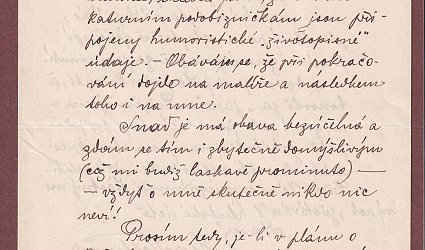 katurním podobizničkám jsou při-
pojeny humoristické „životopisné"
údaje. – Obávám se, že při pokračo-
vání dojde na malíře a následkem
toho i na mne.
Snad je má obava bezúčelná a
zdám se tím i zbytečně domýšlivým
(což mi budiž laskavě prominuto) —
– vždyť o mně skutečně nikdo nic
neví!
Prosím tedy, je-li v plánu o